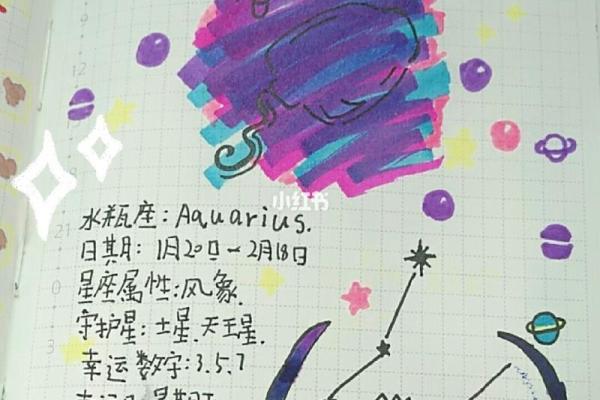 小红书
水瓶座：Aquarius.
日期：1月20日—2月18日
星座属性：风象.
守护星：土星.天王星.
幸运数字：3.5.7